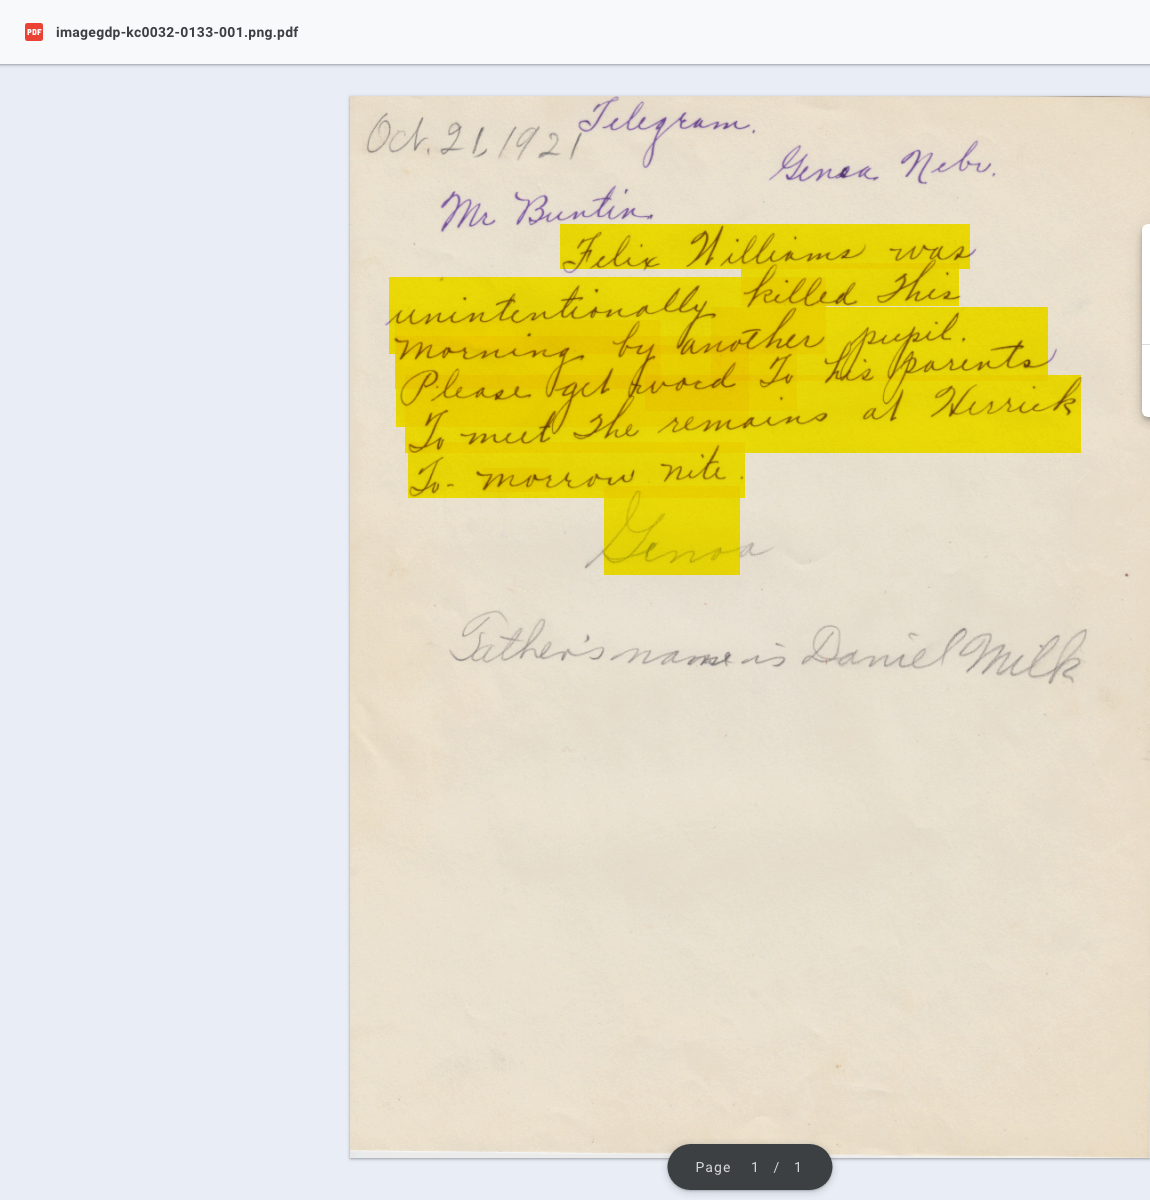 PDF imagegdp-kc0032-0133-001.png.pdf
Telegram.
Oct. 21, 1921
Genoa Nebr.
Mr Buntin
Felix Williams was
unintentionally killed This
morning by another pupil.
Please get word To his parents
To meet The remains at Herrick
To-morrow nite.
Genoa
Father's name is Daniel Milk
Page 1 / 1